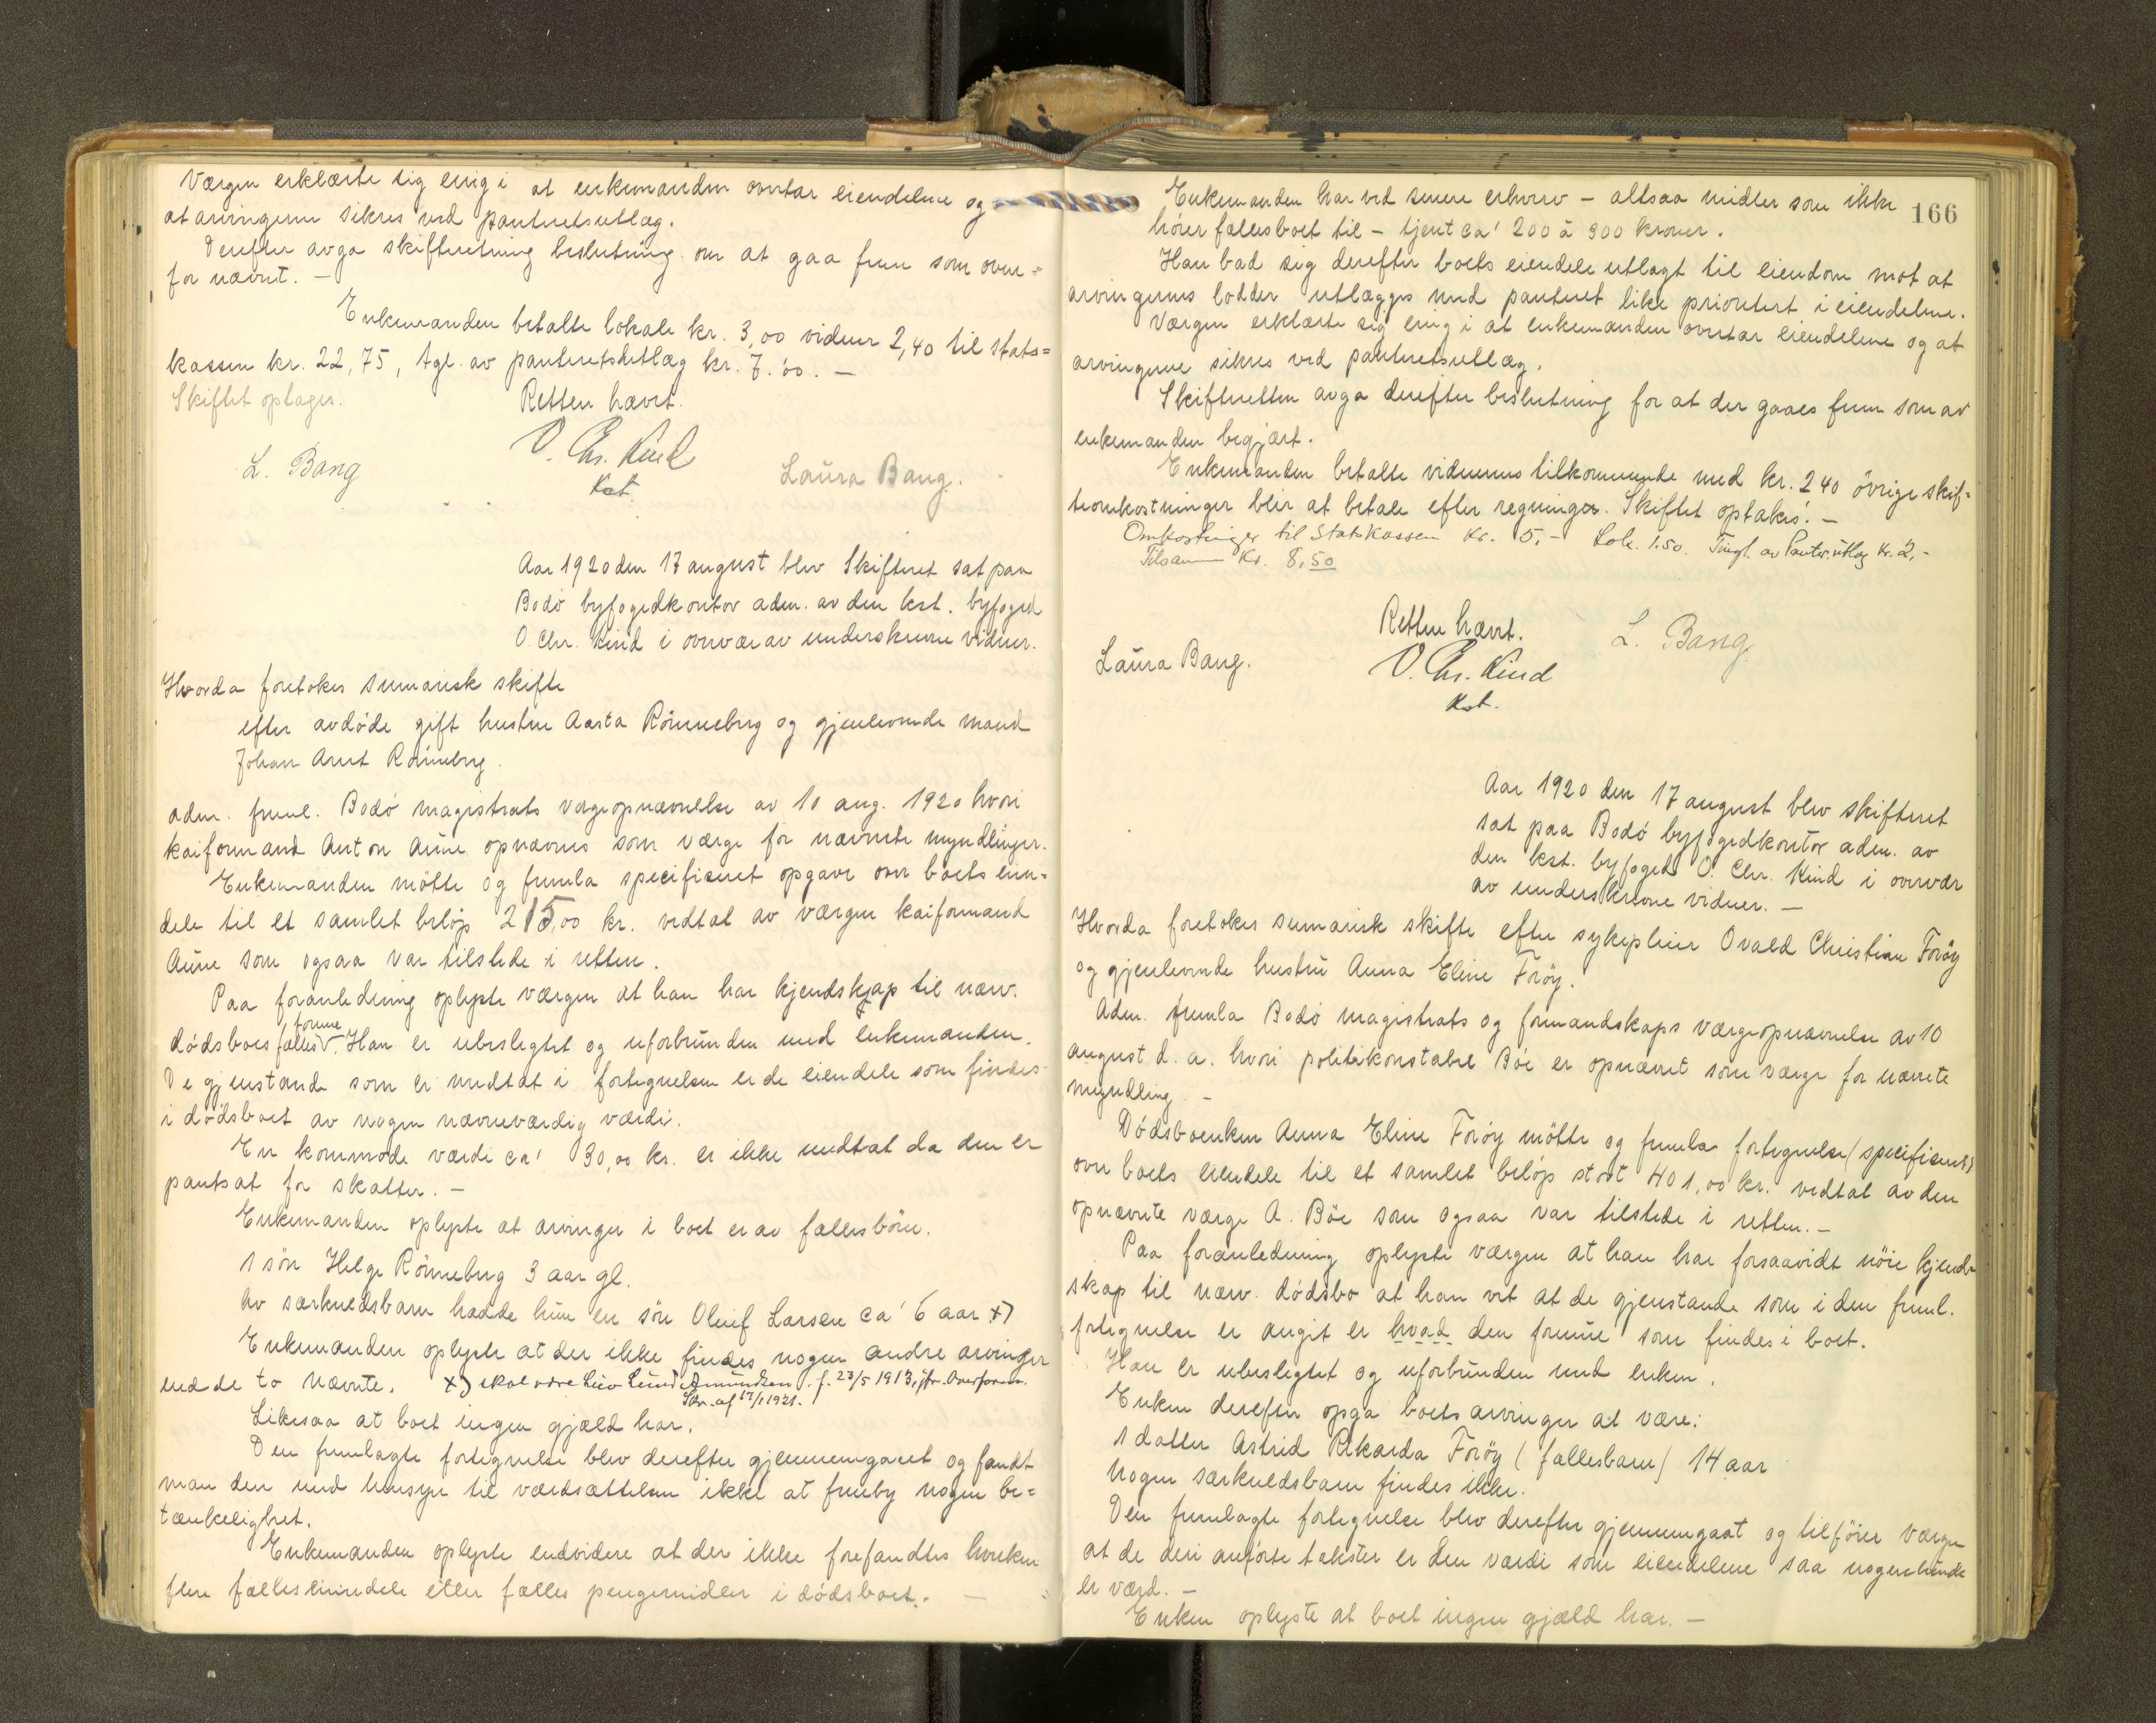 Værgen erklærte sig enig i at enkemanden overtar eiendelene og
at arvingerne sikres ved panteretsutlæg.
Derefter avga skifteretning beslutning om at gaa frem som oven=
for nævnt. —
Enkemanden betalte lokale kr. 3,00 vidner 2,40 til stats=
kassen kr. 22,75, tgl. av panteretsutlæg kr. 7.00. —
Skiftet optages. Retten hævet.
L. Bang O. Chr. Kind Laura Bang.
Kst.
Aar 1920 den 17 august blev Skifteret sat paa
Bodö byfogedkontor adm. av den kst. byfoged
O. Chr. Kind i overvær av underskrevne vidner.
Hvorda foretokes sumarisk skifte
efter avdöde gift hustru Aasta Rönneberg og gjenlevende mand
Johan Arnt Rönneberg.
adm. freml. Bodö magistrats vergeopnævnelse av 10 aug. 1920 hvori
kaiformand Anton Aune opnævnes som værge for nævnte myndlinger.
Enkemanden mötte og fremla specificeret opgave over boets eien=
dele til et samlet belöp 215,00 kr. vedtat av værgen kaiformand
Aune som ogsaa var tilstede i retten.
Paa foranledning oplyste værgen at han har kjendskjap til næv.
dödsboes fælles formue. Han er ubeslegtet og uforbunden med enkemanden.
De gjenstande som er medtat i fortegnelsen er de eiendele som findes
i dödsboet av nogen nævneværdig værdi.
En kommode værdi ca' 30,00 kr. er ikke medtat da den er
pantsat for skatter. —
Enkemanden oplyste at arvinger i boet er av fællesbörn.
1 sön Helge Rönneberg 3 aar gl.
Av særkuldsbarn hadde hun en sön Oluf Larsen ca' 6 aar x)
Enkemanden oplyste at der ikke findes nogen andre arvinger
end de to nævnte. x) skal være Leiv Lund Amundsen f. 23/5 1913, jfr. Overform.
Skr. af 17/1 1921.
Likesaa at boet ingen gjæld har.
Den fremlagte fortegnelse blev derefter gjennemgaaet og fandt
man den med hensyn til værdsættelsen ikke at fremby nogen be=
tænkelighet.
Enkemanden oplyste endvidere at der ikke forefandtes hverken
flere fælleseiendele eller fælles pengemidler i dödsboet. —
166
Enkemanden har ved senere erhverv – altsaa midler som ikke
hörer fællesboet til – tjent ca' 200 à 300 kroner.
Han bad sig derefter boets eiendele utlagt til eiendom mot at
arvingernes lodder utlægges med panteret like prioritert i eiendelene.
Værgen erklærte sig enig i at enkemanden overtar eiendelene og at
arvingene sikres ved panteretsutlæg.
Skifteretten avga derefter beslutning for at der gaaes frem som av
enkemanden begjært.
Enkemanden betalte vidnernes tilkommende med kr. 240 övrige skif=
teomkostninger blir at betale efter regninger. Skiftet optakes. —
Omkostninger til Statskassen kr. 5,- Lok. 1.50. Tingl. av Panter.utlæg kr. 2,-
Tilsammen Kr. 8,50
Retten hævet. L. Bang.
Laura Bang. O. Chr. Kind
Kst.
Aar 1920 den 17 august blev skifteret
sat paa Bodö byfogedkontor adm. av
den kst. byfoged O. Chr. Kind i overvær
av underskrevne vidner. —
Hvorda foretokes sumarisk skifte efter sykepleier Ovald Christian Foröy
og gjenlevende hustru Anna Eline Foröy.
Adm. fremla Bodö magistrats og formandskaps værgeopnævnelse av 10
august d. a. hvori politikonstabel Böe er opnævnt som værge for nævnte
myndling. —
Dödsboenken Anna Eline Foröy mötte og fremla fortegnelse (specificeret)
over boets eiendele til et samlet belöp stort 401,00 kr. vedtat av den
opnævnte værge A. Böe som ogsaa var tilstede i retten. —
Paa foranledning oplyste værgen at han har forsaavidt nöie kjend-
skap til næv. dödsbo at han vet at de gjenstande som i den freml.
fortegnelse er angit er hvad den formue som findes i boet.
Han er ubeslegtet og uforbunden med enken.
Enken derefter opga boets arvinger at være:
1 datter Astrid Rikarda Foröy (fællesbarn) 14 aar
Nogen særkuldsbarn findes ikke.
Den fremlagte fortegnelse blev derefter gjennemgaat og tilföier værgen
at de deri anförte takster er den værdi som eiendelene saa nogenlunde
er værd. —
Enken oplyste at boet ingen gjæld har. —